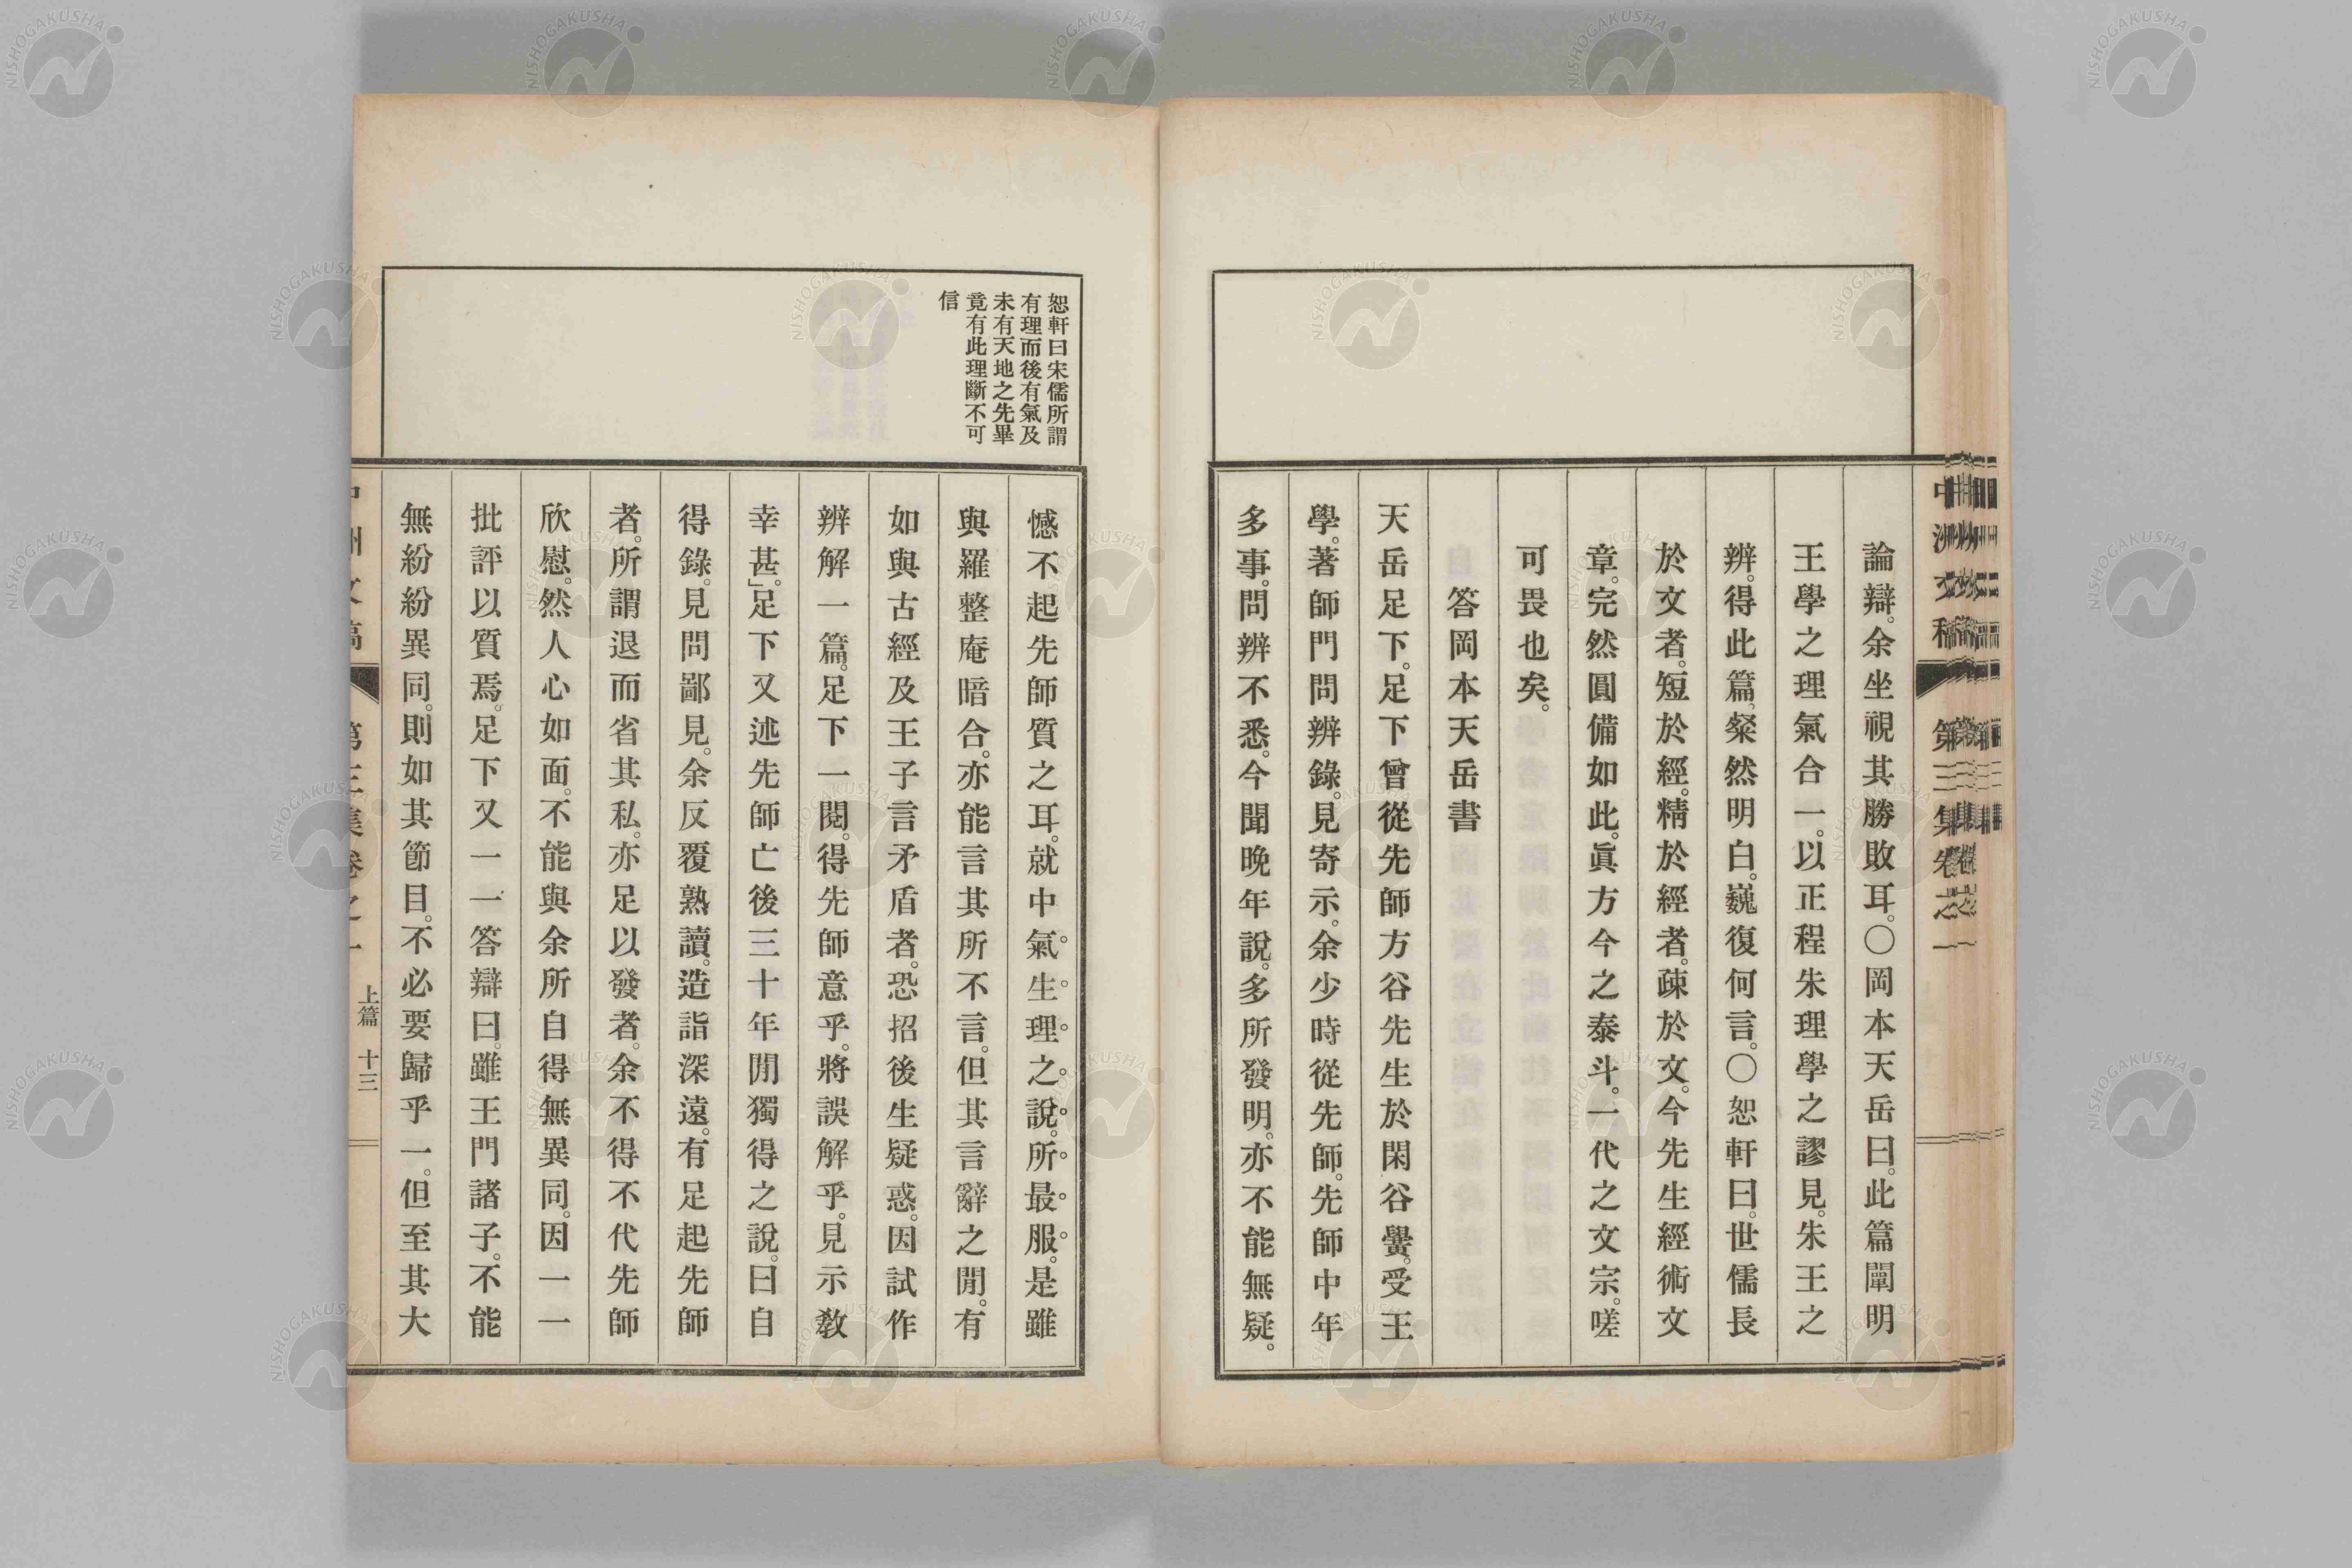 中洲文稿 第三集卷之一
論辯。余坐視其勝敗耳。〇岡本天岳曰。此篇闡明
王學之理氣合一。以正程朱理學之謬見。朱王之
辨。得此篇、粲然明白。巍復何言。〇恕軒曰。世儒長
於文者。短於經。精於經者。疎於文。今先生經術文
章。完然圓備如此。眞方今之泰斗。一代之文宗。嗟
可畏也矣。
答岡本天岳書
天岳足下。足下曾從先師方谷先生於閑谷黌。受王
學。著師門問辨錄。見寄示。余少時從先師。先師中年
多事。問辨不悉。今聞晚年說。多所發明。亦不能無疑。
恕軒曰宋儒所謂
有理而後有氣及
未有天地之先畢
竟有此理斷不可
信
憾不起先師質之耳。就中氣生理之說。所最服。是雖
與羅整庵暗合。亦能言其所不言。但其言辭之閒。有
如與古經及王子言矛盾者。恐招後生疑惑。因試作
辨解一篇。足下一閱。得先師意乎。將誤解乎。見示敎
幸甚。」足下又述先師亡後三十年閒獨得之說。曰自
得錄。見問鄙見。余反覆熟讀。造詣深遠。有足起先師
者。所謂退而省其私。亦足以發者。余不得不代先師
欣慰。然人心如面。不能與余所自得無異同。因一一
批評以質焉。足下又一一答辯曰。雖王門諸子。不能
無紛紛異同。則如其節目。不必要歸乎一。但至其大
上篇 十三
NISHOGAKUSHA